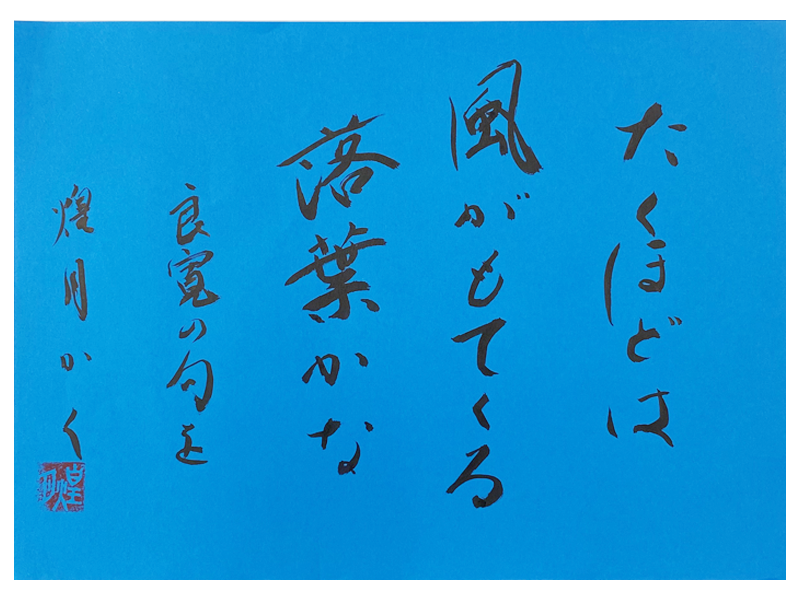 たくほどは
風がもてくる
落葉かな
良寛の句を
煌月かく
煌月